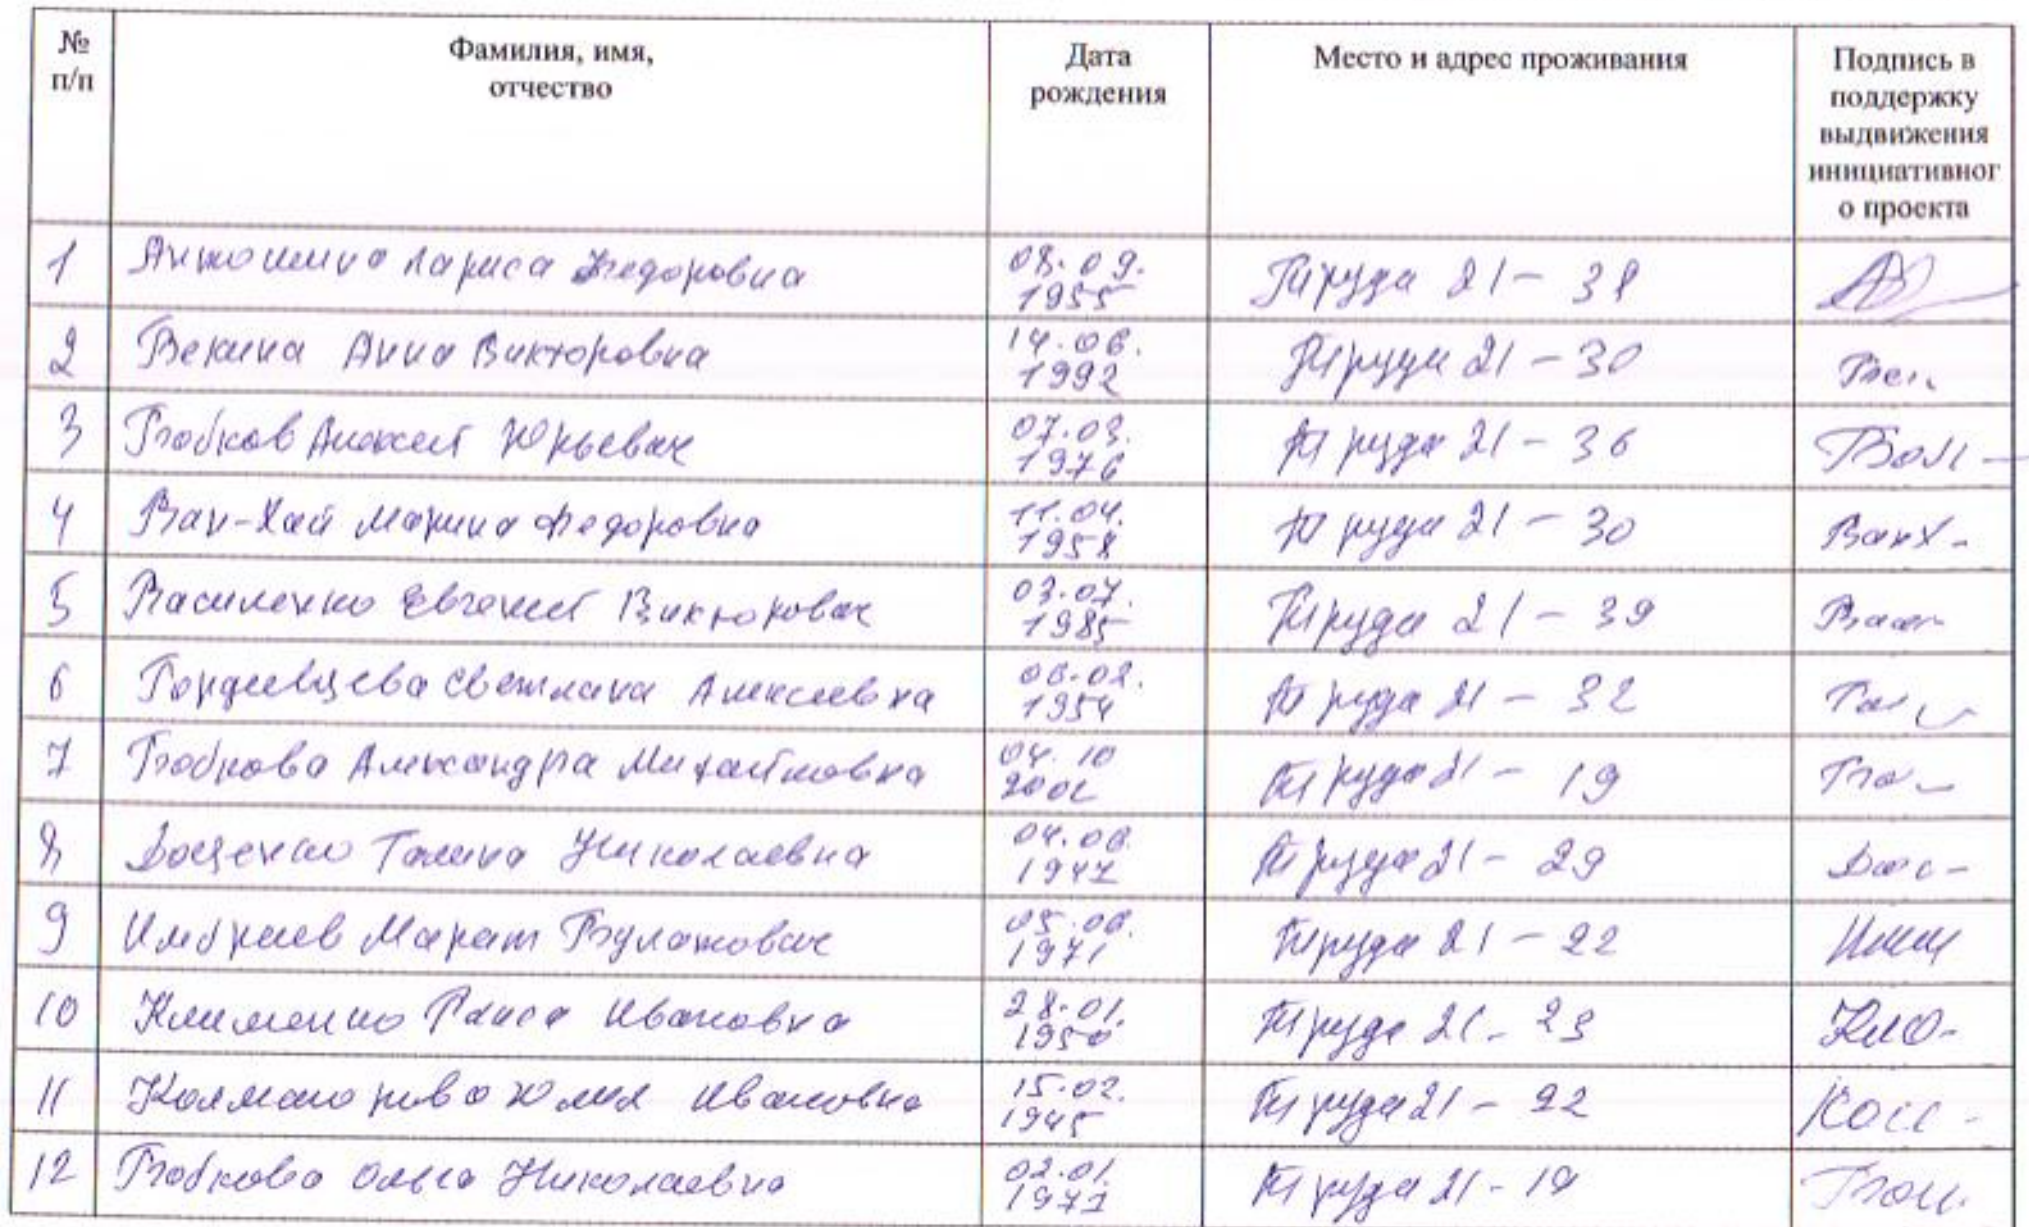 № п/п
Фамилия, имя, отчество
Дата рождения
Место и адрес проживания
Подпись в поддержку выдвижения инициативног о проекта
1 Антошина Лариса Федоровна 08.09. 1955 Труда 21 - 38
2 Векина Анна Викторовна 14.06. 1992 Труда 21 - 30 Век
3 Бобков Алексей Юрьевич 07.03. 1976 Труда 21 - 36
4 Ван-Хай Марина Федоровна 11.04. 1958 Труда 21 - 30 ВанХ-
5 Василенко Евгений Викторович 03.07. 1985 Труда 21 - 39
6 Гордиевцева Светлана Алексеевна 06.02. 1954 Труда 21 - 32
7 Бобкова Александра Михайловна 04.10 Труда 21 - 19
8 Доценко Галина Николаевна Труда 21 - 29
9 Имбриев Марат Булатович 05.06. 1971 Труда 21 - 22
10 Клименко Раиса Ивановна 28.01. 1950 Труда 21 - 23
11 Юлия Ивановна 15.02. 1945 Труда 21 - 22
12 Бобкова Ольга Николаевна 02.01. Труда 21 - 19